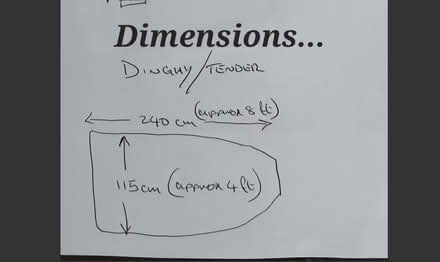 Dimensions...
DINGHY/TENDER
240 cm (approx 8 ft)
115cm (approx 4 ft)